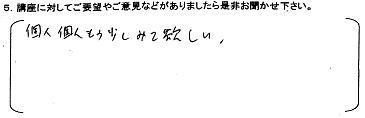 5. 講座に対してご要望やご意見などがありましたら是非お聞かせ下さい。
個人個人もう少しみて欲しい,